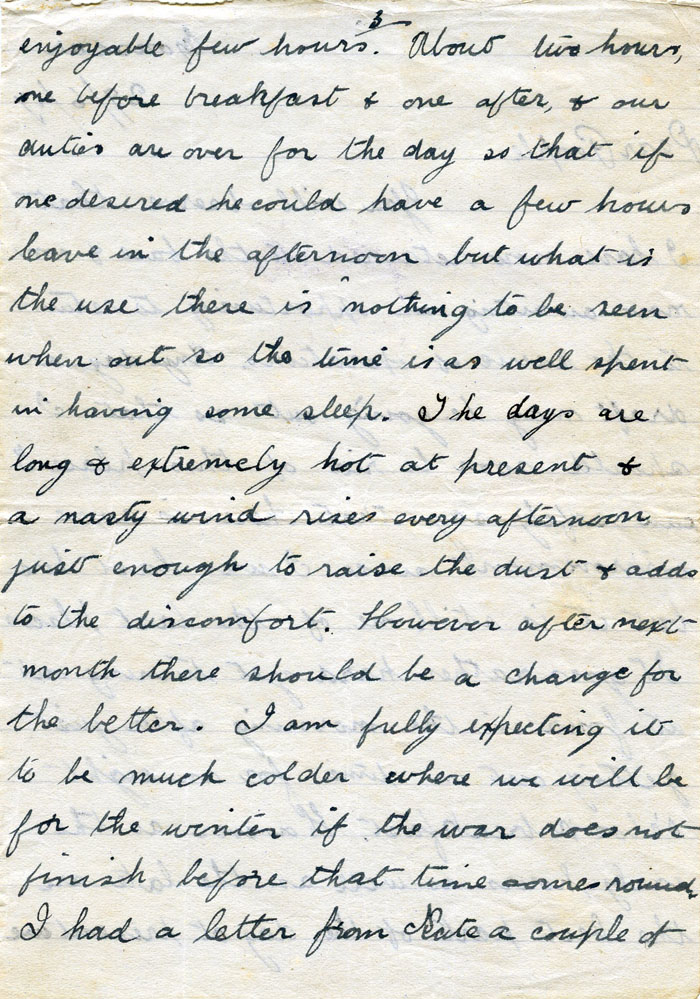 3
enjoyable few hours. About two hours,
one before breakfast & one after, & our
duties are over for the day so that if
one desired he could have a few hours
leave in the afternoon but what is
the use there is nothing to be seen
when out so the time is as well spent
in having some sleep. The days are
long & extremely hot at present &
a nasty wind rises every afternoon
just enough to raise the dust & adds
to the discomfort. However after next
month there should be a change for
the better. I am fully expecting it
to be much colder where we will be
for the winter if the war does not
finish before that time comes round.
I had a letter from Kate a couple of